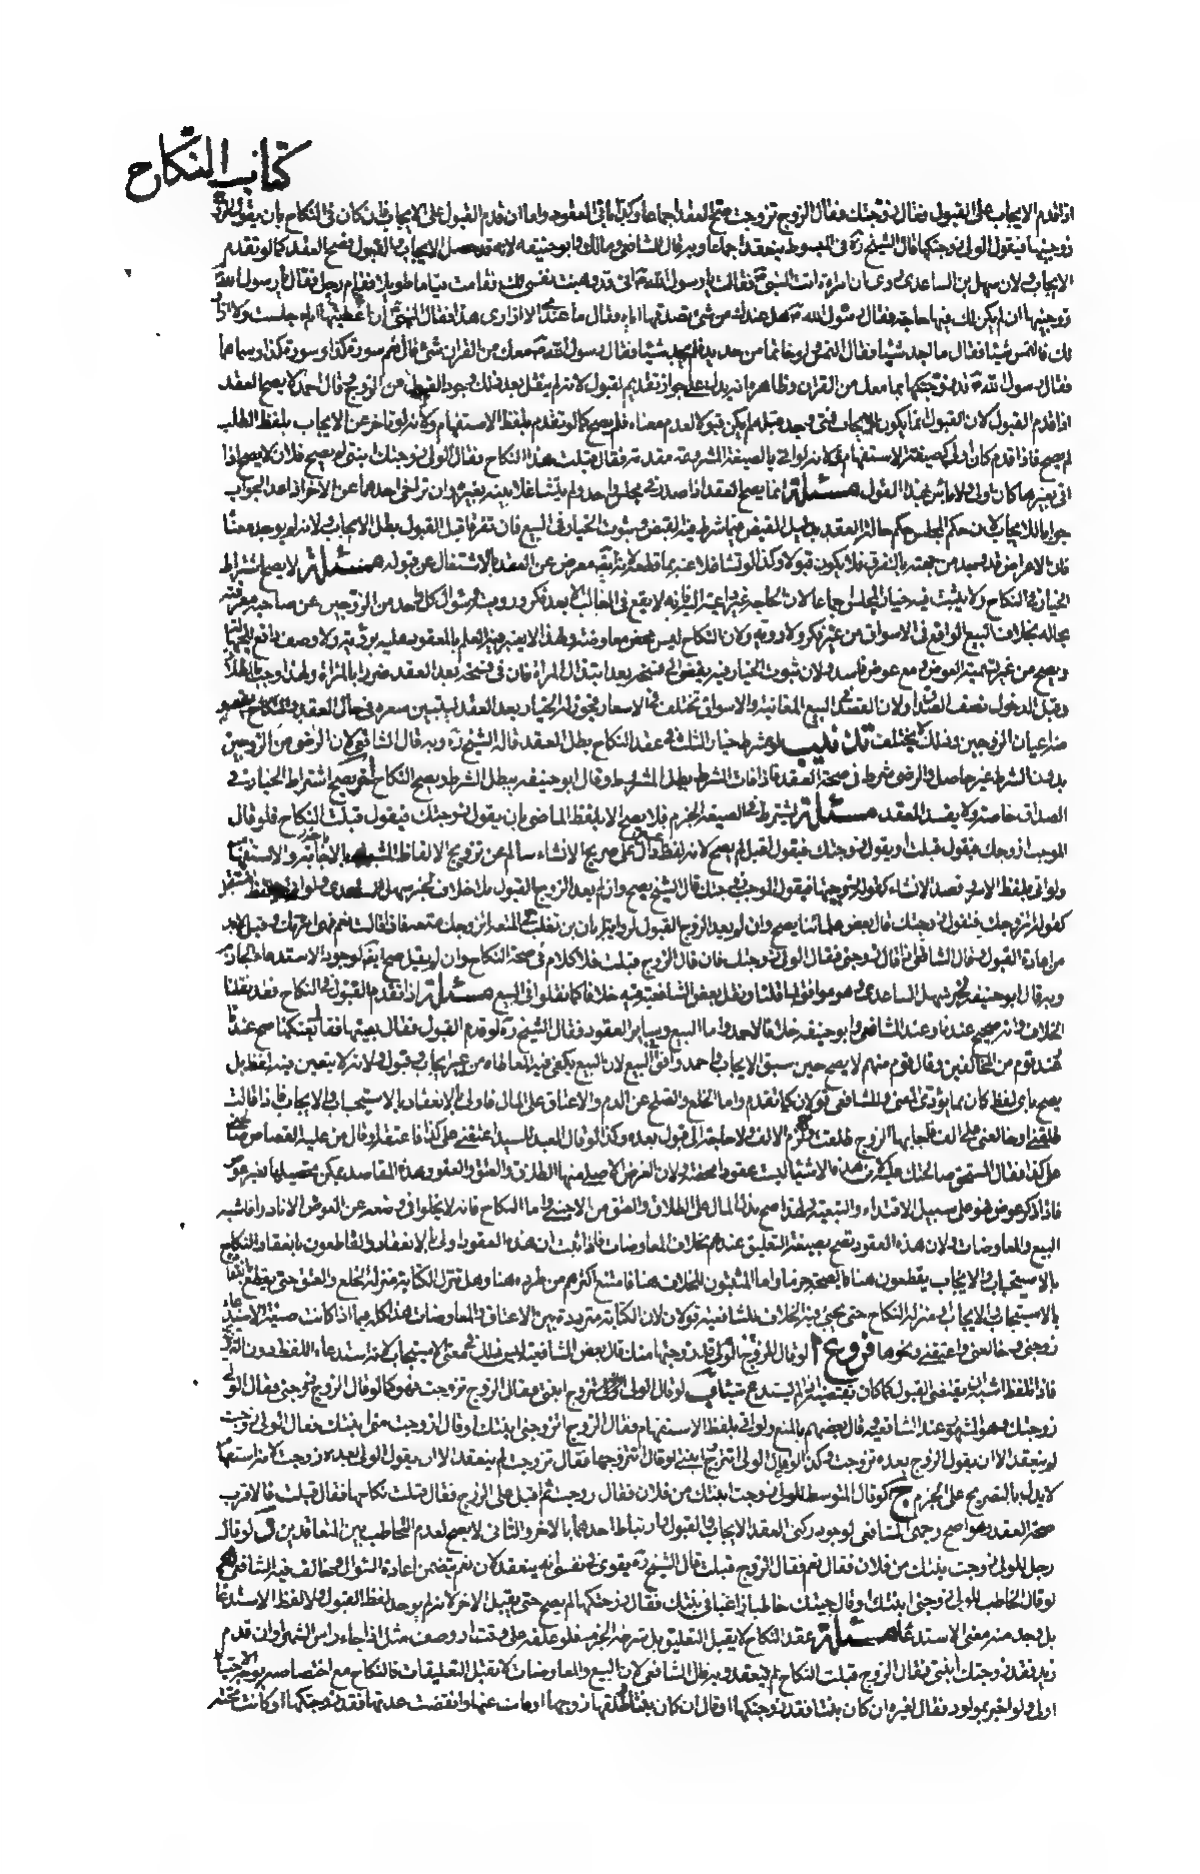 كتاب النكاح
اذا قدم الايجاب على القبول فقال زوجتك فقال الزوج تزوجت صح العقد اجماعا وكذا باقى العقود واما ان قدم القبول على الايجاب فان كان فى النكاح بان يقول الزوج
زوجنيها فيقول الولى زوجتكها قال الشيخ ره فى المبسوط ينعقد اجماعا وبه قال الشافعى ومالك وابو حنيفه لانه قد حصل الايجاب والقبول فصح العقد كما لو تقدم
الايجاب ولان سهل بن الساعدى روى ان امراة اتت النبى فقالت يا رسول الله انى قد وهبت نفسى لك فقامت قياما طويلا فقام رجل فقال يا رسول الله
زوجنيها ان لم يكن لك فيها حاجة فقال رسول الله هل عندك من شئ تصدقها اياه فقال ما عندى الا ازارى هذا فقال النبى ان اعطيتها اياه جلست ولا ازار
لك فالتمس شيئا فقال ما اجد شيئا فقال التمس ولو خاتما من حديد فلم يجد شيئا فقال رسول الله معك من القران شئ قال نعم سورة كذا وسورة كذا وسماهما
فقال رسول الله قد زوجتكها بما معك من القران وظاهره انه يدل على جواز تقديم القبول لانه لم ينقل بعد ذلك وجود القبول من الزوج وقال احمد لا يصح العقد
اذا قدم القبول لان القبول انما يكون للايجاب فمتى وجد قبله لم يكن قبولا لعدم معناه فلم يصح كما لو تقدم بلفظ الاستفهام ولانه لو تاخر عن الايجاب بلفظ الطلب
لم يصح فاذا تقدم كان اولى كصيغة الاستفهام ولانه لو اتى بالصيغة المشروعة متقدمة فقال قبلت هذا النكاح فقال الولى زوجتك ابنتى لم يصح فلان لا يصح اذا
اتى بغيرها كان اولى مسئلة انما يصح العقد اذا صدر فى مجلس واحد ولم يتشاغلا بينه بغيره وان تراخى احدهما عن الاخر اذا عد الجواب
جوابا للايجاب لان حكم المجلس حكم حالة العقد بدليل القبض فيما شرط فيه القبض وثبوت الخيار فى البيع فان تفرقا قبل القبول بطل الايجاب ولانه لم يوجد معناه
فان الاعراض قد وجد من جهته بالتفرق فلا يكون قبولا وكذا لو تشاغلا عنه بما قطعه لانه معرض عن العقد بالاشتغال عن قبوله مسئلة لا يصح اشتراط
الخيار فى النكاح ولا يثبت فيه خيار المجلس اجماعا لان الحاجة غير داعية اليه فانه لا يقع فى الغالب الا بعد فكر وروية وسؤال كل واحد من الزوجين عن صاحبه ومعرفته
بحاله بخلاف البيع الواقع فى الاسواق من غير فكر ولا روية ولان النكاح ليس بمحض معاوضة ولهذا لا يعتبر فيه العلم بالمعقود عليه برؤية ولا وصف رافع للجهالة
ويصح من غير تسمية العوض ومع عوض فاسد ولان ثبوت الخيار فيه يفضى الى فسخه بعد ابتذال المراة فان فى فسخه بعد العقد ضررا بالمراة ولهذا وجب بالطلاق
وقبل الدخول نصف الصداق ولان القصد فى البيع المغابنة والاسواق تختلف فى الاسعار فجوز له الخيار بعد العقد ليتبين سعره فى حال العقد والنكاح
اعيان الزوجين وذلك لا يختلف تذنيب لو شرط خيار الثلث فى عقد النكاح بطل العقد قاله الشيخ ره وبه قال الشافعى لان الرضى من الزوجين
بدون الشرط غير حاصل والرضى شرط فى صحة العقد فاذا فات الشرط بطل المشروط وقال ابو حنيفه يبطل الشرط ويصح النكاح نعم يصح اشتراط الخيار فى
الصداق خاصة ولا يفسد العقد مسئلة يشترط فى الصيغة الجزم فلا يصح الا بلفظ الماضى بان يقول زوجتك فيقول قبلت النكاح فلو قال
الموجب ازوجك فيقول قبلت او يقول زوجتك فيقول اقبل لم يصح لانه لفظ دال على صريح الانشاء سالم من ترويج الالفاظ المشبهة بالاخبار والاستفهام
ولو اتى بلفظ الامر وقصد الانشاء كقوله زوجنيها فيقول الموجب زوجتك قال الشيخ يصح وان لم يعد الزوج القبول بلا خلاف لخبر سهل الساعدى ولو اتى بلفظ المستقبل
كقوله اتزوجك فتقول زوجتك قال بعض علمائنا يصح وان لم يعد الزوج القبول لرواية ابان بن تغلب فى المتعة اتزوجك متعة فاذا قالت نعم فهى امراتك وقيل لابد
من اعادة القبول وقال الشافعى اذا قال زوجنى فقال الولى زوجتك فان قال الزوج قبلت فلا كلام فى صحة النكاح وان لم يقبل صح ايضا لوجود الاستدعاء الجازم
وبه قال ابو حنيفه لخبر سهل الساعدى وهو موافق لما قلنا ونقل بعض الشافعية فيه خلافا كما نقلوا فى البيع مسئلة اذا تقدم القبول فى النكاح فقد نقلنا
الخلاف وانه صحيح عندنا وعند الشافعى وابو حنيفه خلافا لاحمد واما البيع وساير العقود فقال الشيخ ره لو قدم القبول فقال بعنيها فقال بعتكها صح عندنا
وعند قوم من المخالفين وقال قوم منهم لا يصح حتى يسبق الايجاب واحمد وافق فى البيع لان البيع يكفى فيه المعاطاة من غير ايجاب وقبول ولانه لا يتعين فيه لفظ بل
يصح باى لفظ كان مما يؤدى المعنى وللشافعى قولان كما تقدم واما الخلع والصلح عن الدم والاعتاق على المال فاولى بالانعقاد بالاستيجاب والايجاب فاذا قالت
طلقنى او خالعنى على الف فاجابها الزوج طلقت ولزم الالف ولا حاجة الى قبول بعده وكذا لو قال العبد لسيده اعتقنى على كذا فاعتقه او قال من عليه القصاص صالحنى
على كذا فقال المستحق صالحتك عليه لان هذه الاشياء ليست عقودا محضة ولان الغرض الاصلى منها الطلاق والعتق والعفو وهذه المقاصد يمكن تحصيلها بغير عوض
فاذا ذكر عوض فهو على سبيل الافتداء والتبعية ولهذا صح بذل المال على الطلاق والعتق من الاجنبى واما النكاح فانه لا يخلو فى وضعه عن العوض الا نادرا فاشبه
البيع والمعاوضات ولان هذه العقود تصح بصيغة التعليق عندهم بخلاف المعاوضات فاذا ثبت ان هذه العقود اولى بالانعقاد والقاطعون بانعقاد النكاح
بالاستيجاب والايجاب يقطعون هنا بالصحة جزما واما المثبتون للخلاف هنا فامتنع اكثرهم من طرده هنا وهل تنزل الكتابة منزلة الخلع والعتق حتى يقطع بانعقادها
بالاستيجاب والايجاب او منزلة النكاح حتى يجئ فيه الخلاف للشافعية قولان لان الكتابة مترددة بين الاعتاق والمعاوضات هذا كله فيما اذا كانت صيغة الاستدعاء
زوجنى وخالعنى واعتقنى ونحوها فروع ا لو قال للزوج الولى قل تزوجتها مثلا قال بعض الشافعية ليس ذلك فى معنى الاستيجاب لانه استدعاء اللفظ دون التزويج
فاذا تلفظ اشبه ان يقتضى القبول كما كان يقتضيه لو لم يستدع شيئا ب لو قال الولى اتتزوج ابنتى وقال الزوج تزوجت فهو كما لو قال الزوج زوجنى وقال الولى
زوجتك وهو المشهور عند الشافعية وقال بعضهم بالمنع ولو اتى بلفظ الاستفهام وقال الزوج اتزوجنى ابنتك او قال زوجت منى ابنتك فقال الولى زوجت
لم ينعقد الا ان يقول الزوج بعده تزوجت وكذا لو قال الولى اتتزوج ابنتى او قال اتتزوجها فقال تزوجت لم ينعقد الا ان يقول الولى بعده زوجت لانه استفهام
لا بد له بالتصريح على الجزم ج لو قال المتوسط للولى زوجت ابنتك من فلان فقال زوجت ثم اقبل على الزوج فقال قبلت نكاحها فقال قبلت فالاقرب
صحة العقد وهو اصح وجهى الشافعى لوجود ركنى العقد الايجاب والقبول وارتباط احدهما بالاخر والثانى لا يصح لعدم التخاطب بين المتعاقدين د لو قال
رجل للولى زوجت بنتك من فلان فقال نعم فقال الزوج قبلت قال الشيخ ره يقوى فى نفسى انه ينعقد لان نعم يتضمن اعادة السؤال وخالف فيه الشافعى ه
لو قال الخاطب للولى زوجنى ابنتك او قال جئتك خاطبا راغبا فى بنتك فقال زوجتكها لم يصح حتى يقبل الاخر لانه لم يوجد لفظ القبول ولا لفظ الاستدعاء
بل وجد منه معنى الاستدعاء مسئلة عقد النكاح لا يقبل التعليق بل شرطه الجزم فلو علقه على وقت او وصف مثل اذا جاء راس الشهر او ان قدم
زيد فقد زوجتك ابنتى فقال الزوج قبلت النكاح لم ينعقد وبه قال الشافعى لان البيع والمعاوضات لا تقبل التعليقات فالنكاح مع اختصاصه بوجه الاحتياط
اولى ولو اخبر بمولود فقال لغيره ان كان بنتا فقد زوجتكها او قال ان كان بنتى طلقها زوجها او مات عنها وانقضت عدتها فقد زوجتكها او كانت تحته